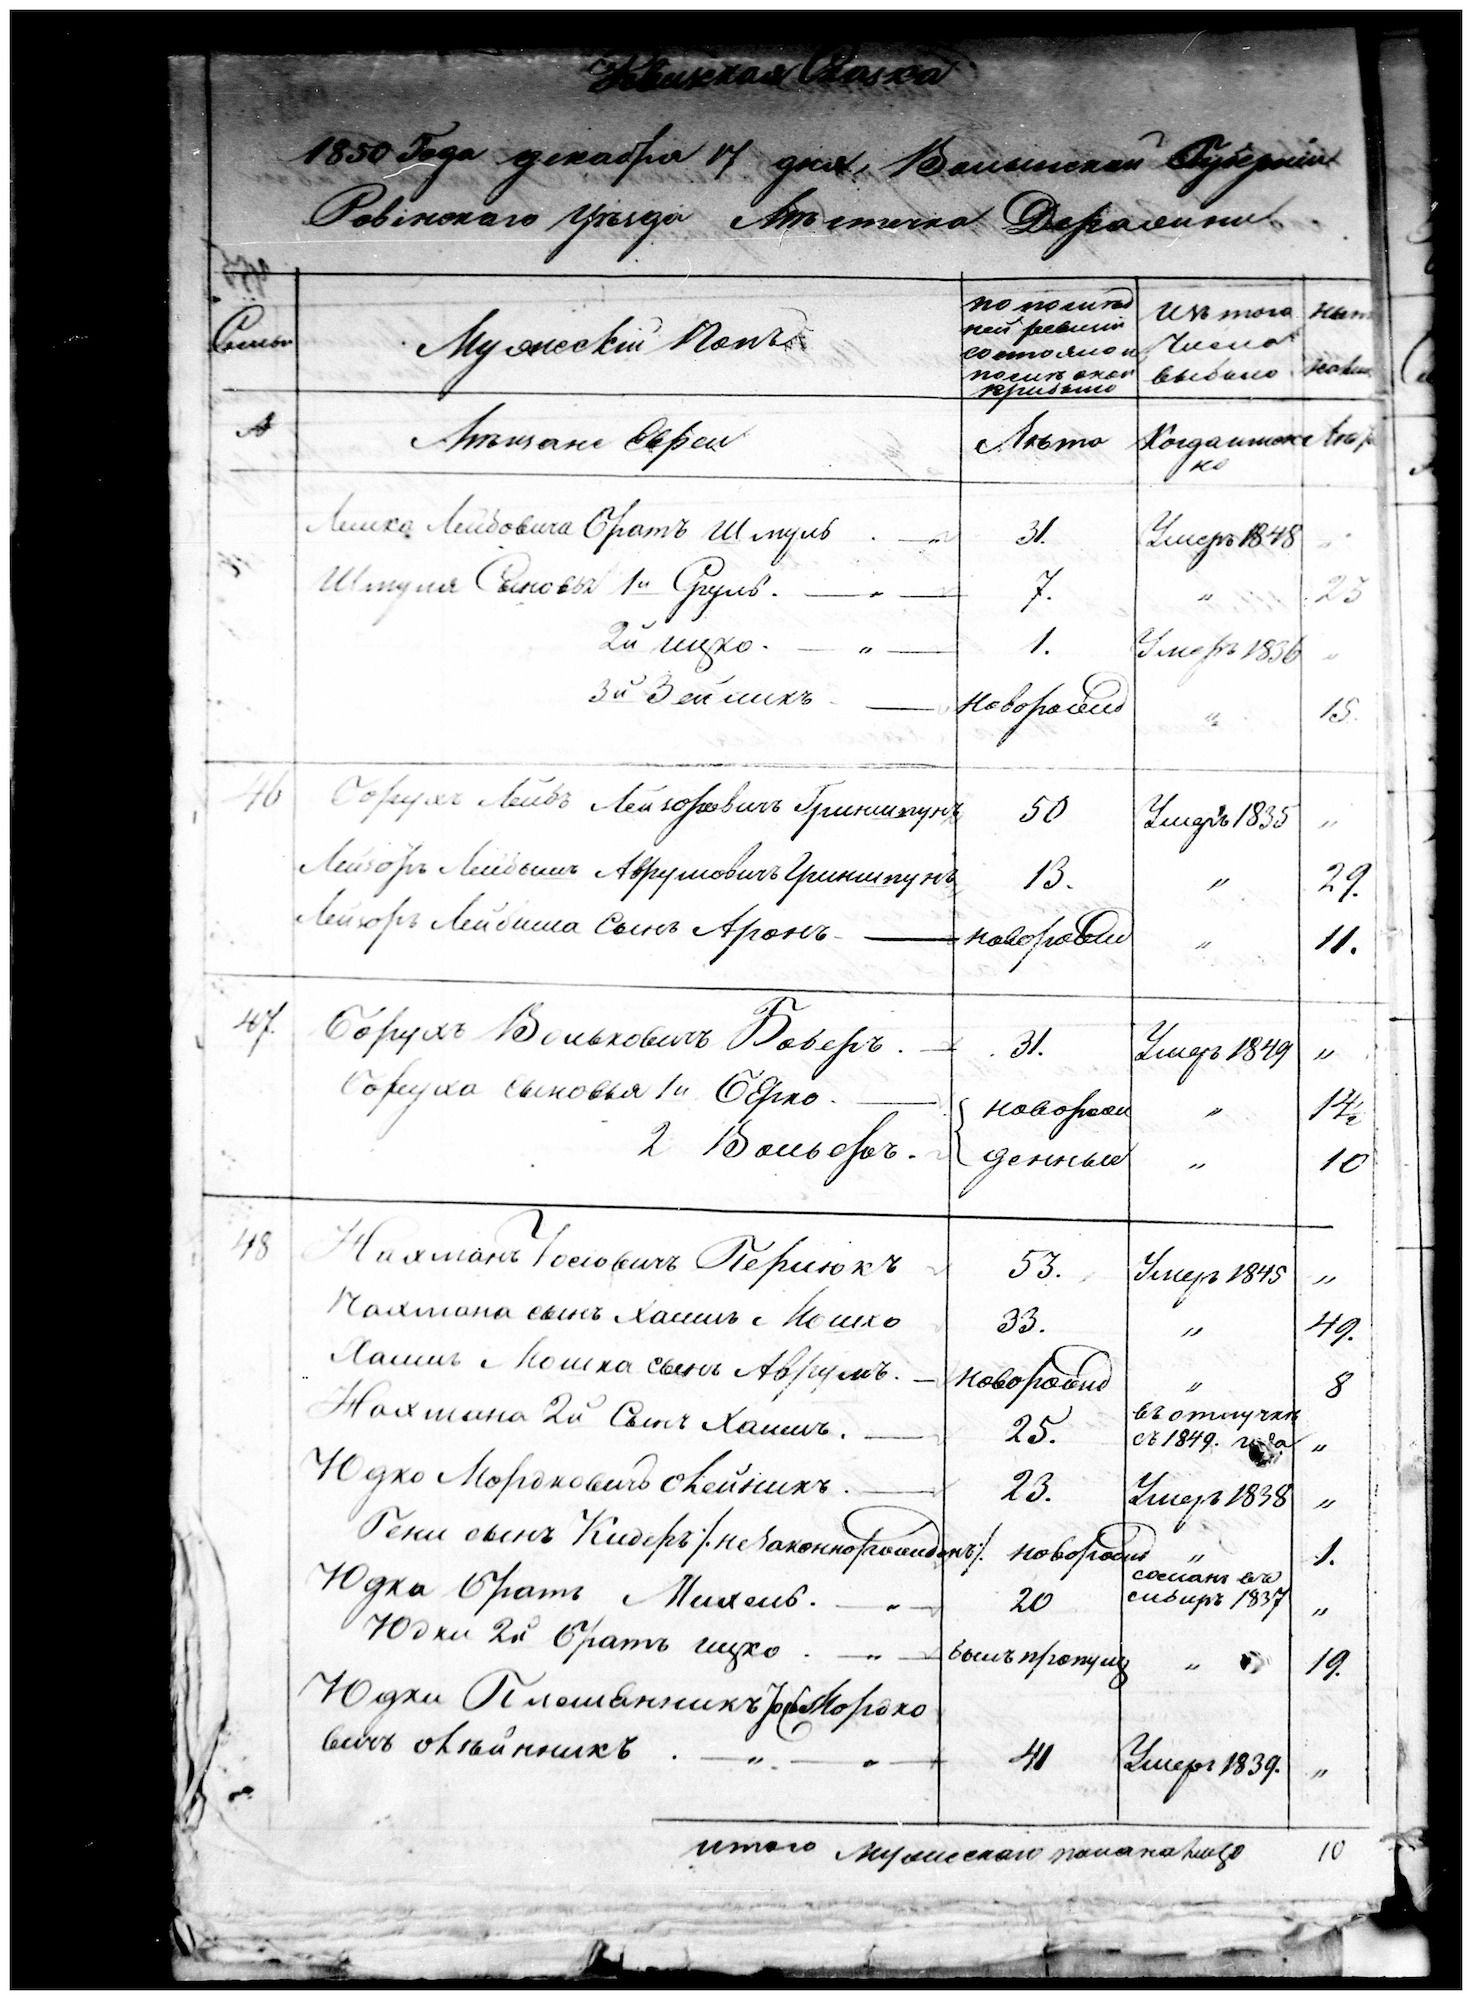 Ревижская Сказка
1850 Года декабря 17 дня, Волынской Губерніи
Ровенскаго Уѣзда Мѣстечка Деражни
Семьи
Мужескій Полъ
по послѣд
ней ревизіи
состояло и
послѣ оной
прибыло
Изъ того
Числа
выбыло
нынѣ
Мѣщане Евреи
Лѣта
Когда имен
но
Лѣта
Лейбовича братъ Шмуль 31. Умеръ 1848 "
Шмуля Сыновья 1й Сруль. " 7. " 23
2й ицко. " 1. Умеръ 1836 "
3й Зейликъ новорожд " 15.
46 Борухъ Лейбъ Лейзоровичъ Гриншпунъ 50 Умеръ 1835 "
Лейзоръ Лейбишъ Аврумовичъ Гриншпунъ 13. " 29.
Лейзоръ Лейбиша сынъ Аронъ новорожд " 11.
47. Борухъ Вольковичъ Боберъ. 31. Умеръ 1849 "
Боруха сыновья 1й Берко. новорож " 14½
2 Вольфъ. денные " 10
48 Нахманъ Іосіовичъ Персюкъ 53. Умеръ 1845 "
Нахмана сынъ Хаимъ Мошко 33. " 49.
Хаимъ Мошка сынъ Аврумъ. новорожд " 8
Нахмана 2й Сынъ Хаимъ. 25. въ отлучкѣ
съ 1849. года "
Юдко Мордковичъ Олейникъ. 23. Умеръ 1838 "
Гени сынъ Кидеръ /. незаконнорожденъ /. новорожд " 1.
Юдка братъ Михель. " 20 сосланъ въ
сибирь 1837 "
Юдки 2й братъ ицко. " былъ пропущ " 19.
Юдки Племянникъ Мордко
вичъ Олѣйникъ. " " 41 Умеръ 1839. "
итого мужескаго пола на лицо 10